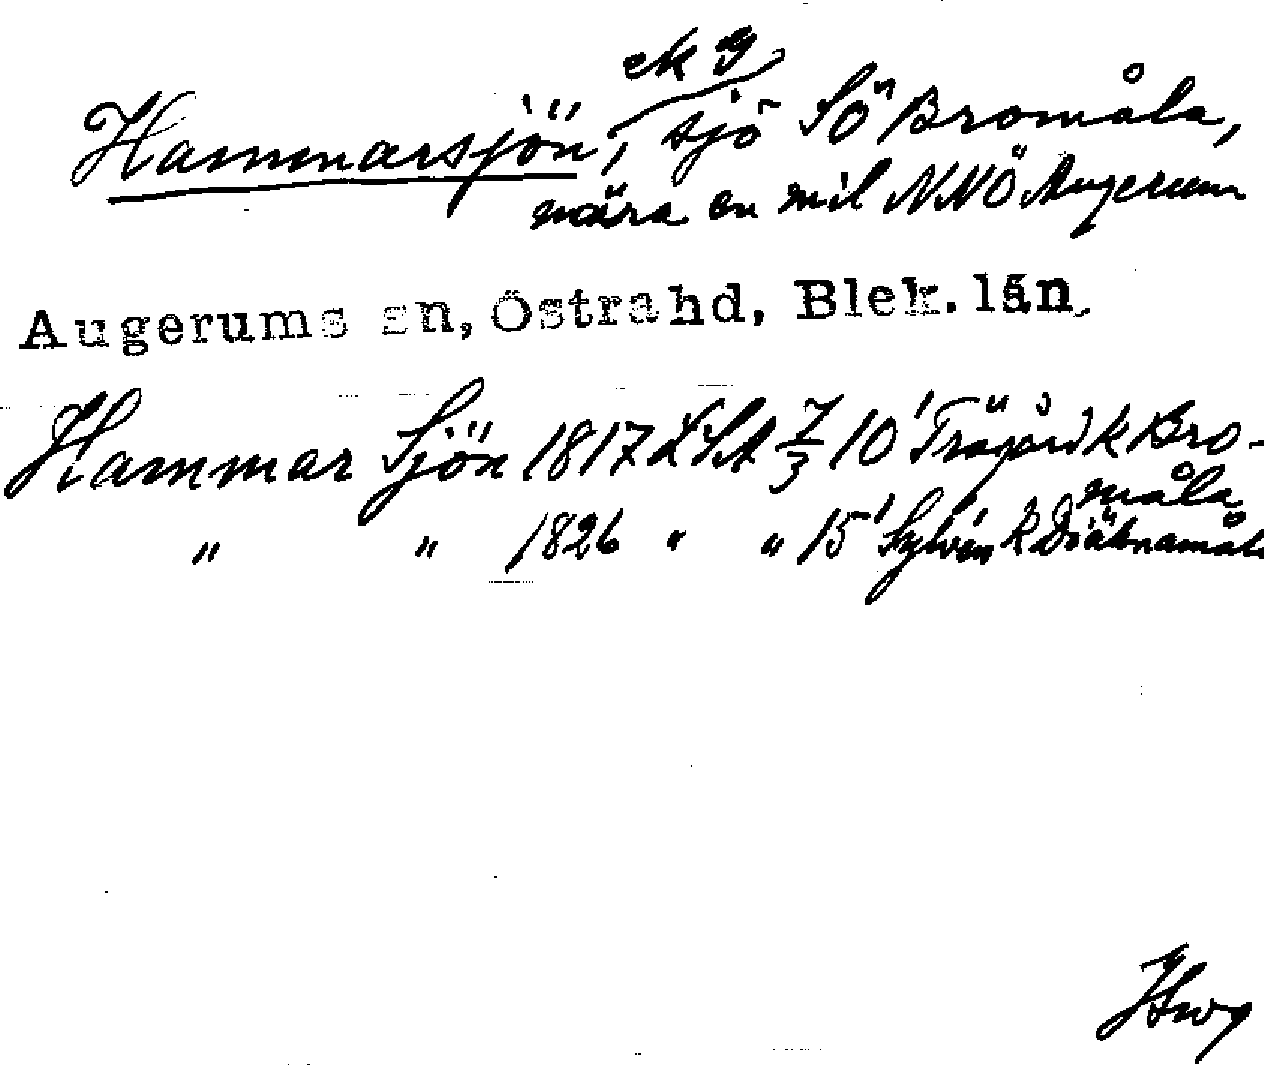 ek 9
Hammarsjön, sjö SÖ Bromåla,
nära en mil NNÖ Augerum
Augerums sn, Östra hd, Blek. län,
Hammar Sjön 1817 LSA 7/3 10' Trägård k Bro-
måla
" " 1826 " " 15' Sylvén k Diäknamåla